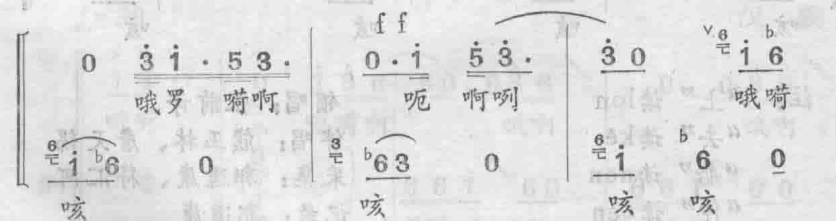 f f
0 3 1 · 5 3 · 0 · i 5 3 · 3 0 6 i b6
哦罗 嗬啊 呃 啊咧 哦嗬
6 i b6 0 3 b6 3 0 6 i b6 0
咳 咳 咳 咳